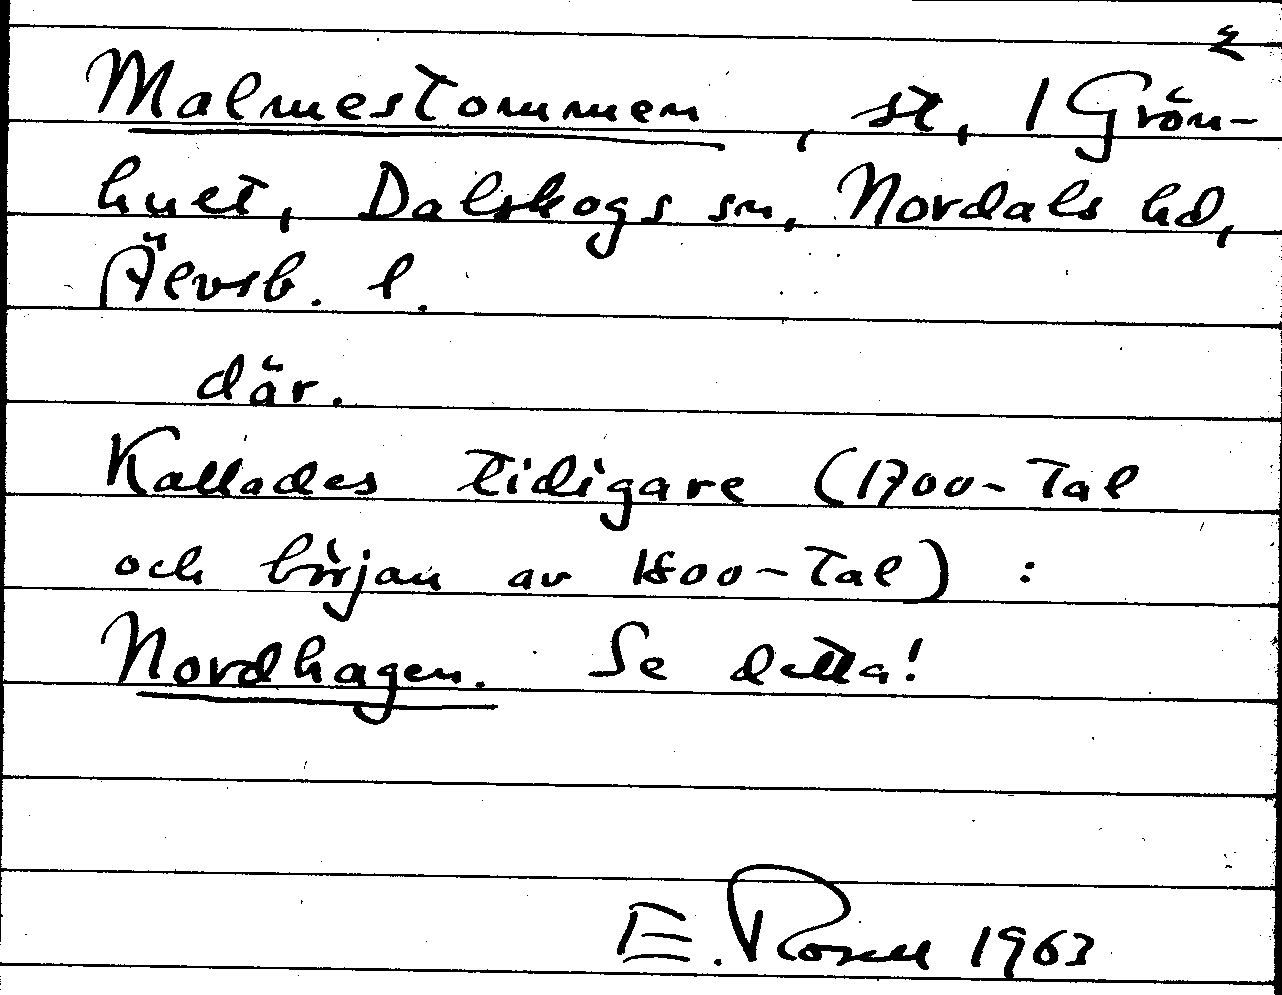 Malmestommen, st, 1 Grön-
huet, Dalskogs sn, Nordals hd,
Älvsb. l.
där.
Kallades tidigare (1700-tal
och början av 1800-tal) :
Nordhagen. Se detta!
E. Rosell 1963